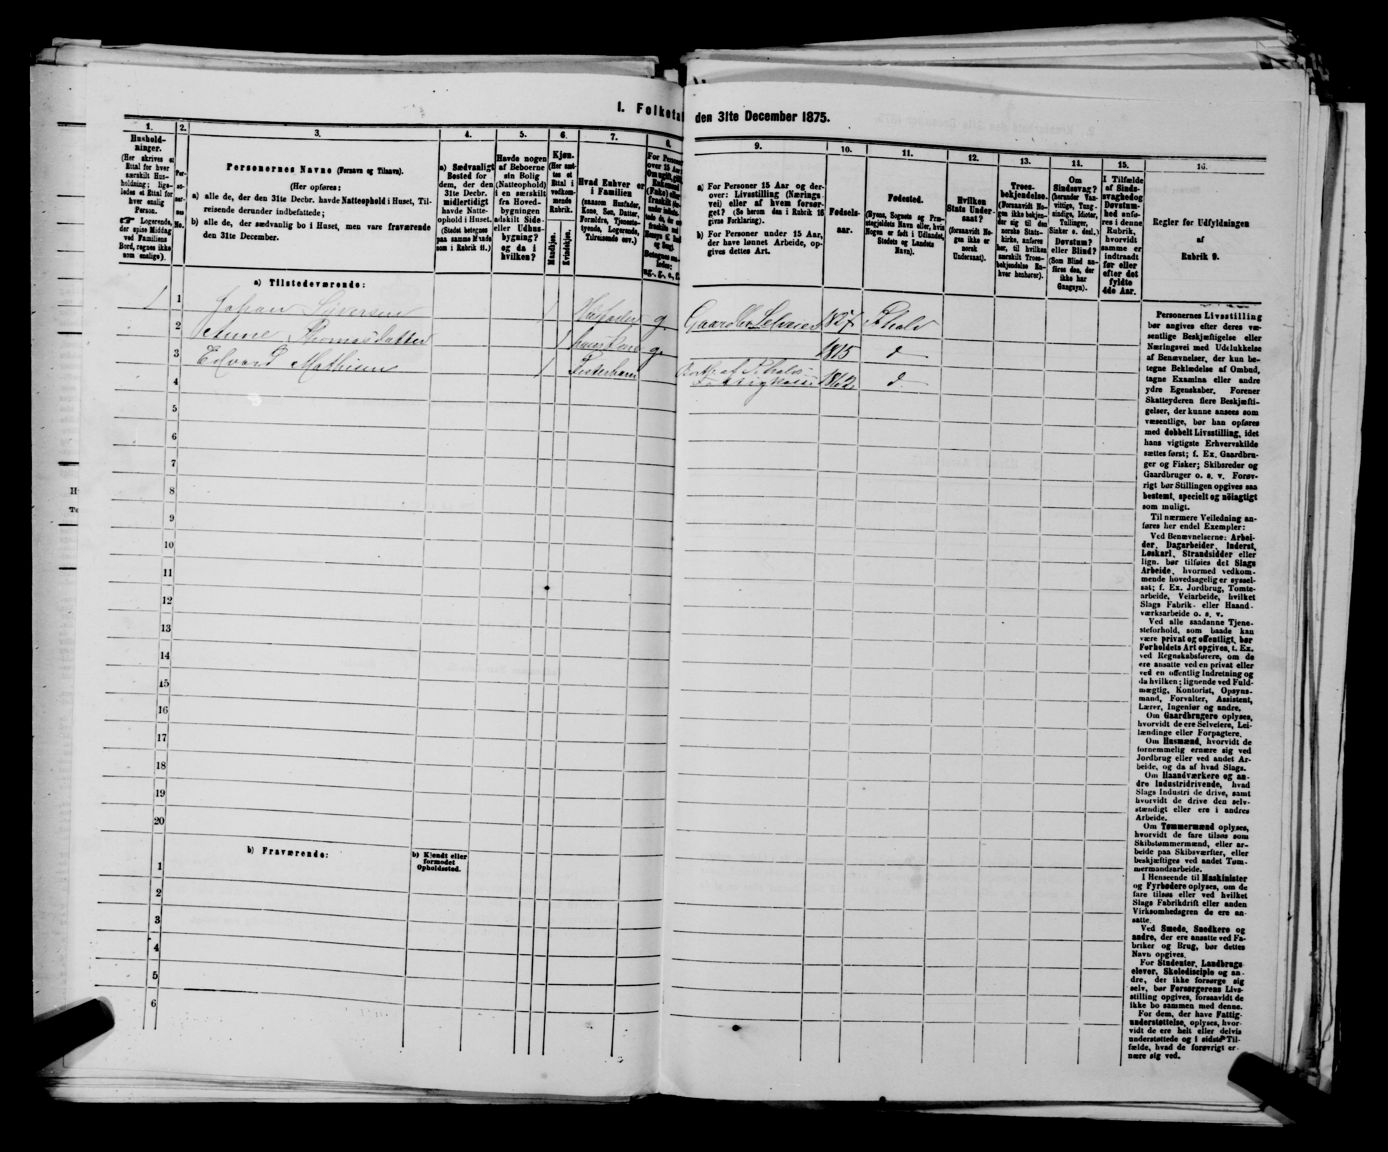 I. Folketæl
den 31te December 1875.
1.
Hushold-
ninger.
(Her skrives et
Ettal for hver
særskilt Hus-
holdning; lige-
ledes et Ettal for
hver enslig
Person.
☞ Logerende,
der spise Middag
ved Familiens
Bord, regnes ikke
som enslige).
2.
Per-
so-
ner-
nes
No.
3.
Personernes Navne (Fornavn og Tilnavn).
(Her opføres:
a) alle de, der den 31te Decbr. havde Natteophold i Huset, Til-
reisende derunder indbefattede;
b) alle de, der sædvanlig bo i Huset, men vare fraværende
den 31te December.
4.
a) Sædvanligt
Bosted for
dem, der den
31te Decbr.
midlertidigt
havde Natte-
ophold i Huset.
(Stedet betegnes
paa samme Maade
som i Rubrik 11.)
5.
Havde nogen
af Beboerne
sin Bolig
(Natteophold)
i en særskilt
fra Hoved-
bygningen
adskilt Side-
eller Udhus-
bygning?
og da i
hvilken?
6.
Kjøn.
(Her sæt-
tes et
Ettal i
vedkom-
mende
Rubrik.
Mandkjøn.
Kvindekjøn.
7.
Hvad Enhver er
i Familien
(saasom Husfader,
Kone, Søn, Datter,
Forældre, Tjeneste-
tyende, Logerende,
Tilreisende osv.)
8.
For Person
over 15 Aar
9.
a) For Personer 15 Aar og der-
over: Livsstilling (Nærings-
vei) eller af hvem forsør-
get? (Se herom den i Rubrik 16
givne Forklaring).
b) For Personer under 15 Aar,
der have lønnet Arbeide, op-
gives dettes Art.
10.
Fødsels-
aar.
11.
Fødested.
(Byens, Sognets og Præ-
stegjeldets Navn eller, hvis
Nogen er født i Udlandet,
Stedets og Landets
Navn).
12.
Hvilken
Stats Under-
saat?
(foranavidt No-
gen ikke er
norsk
Undersaat).
13.
Troes-
bekjendelse.
(Forsaavidt No-
gen ikke bekjen-
der sig til den
norske Stats-
kirke, anføres
her, til hvilken
særskilt Troes-
bekjendelse En-
hver henhører).
14.
Om
Sindssvag?
(herunder Van-
vittige, Tung-
sindige, Idioter,
Tullinger,
Sinker o. desl.)
Døvstum?
eller Blind?
(Som Blind an-
føres den, der
ikke har
Gangsyn).
15.
I Tilfælde
af Sinds-
svaghed og
Døvstum-
hed anfø-
res i denne
Rubrik,
hvorvidt
samme er
indtraadt
før eller
efter det
fyldte
4de Aar.
16.
Regler for Udfyldningen
af
Rubrik 9.
a) Tilstedeværende:
1 1 Johan Sijversen 1 Husfader g. Gaardbr. Selveier 1827 Tthalv
2 Anne Thomasdatter 1 hans Kone g. 1815 d
3 Edvard Mathisen 1 Fosterbarn 1862 d.
4
5
6
7
8
9
10
11
12
13
14
15
16
17
18
19
20
b) Fraværende:
b) Kjendt eller
formodet
Opholdssted.
1
2
3
4
5
6
Personernes Livsstilling
bør angives efter deres væ-
sentlige Beskjæftigelse eller
Næringsvei med Udelukkelse
af Benævnelser, der kun be-
tegne Beklædelse af Ombud,
tagne Examina eller andre
ydre Egenskaber. Forener
Skatteyderen flere Beskjæfti-
gelser, der kunne ansees som
væsentlige, bør han opføres
med dobbelt Livsstilling, idet
hans vigtigste Erhvervskilde
sættes først; f. Ex. Gaardbru-
ger og Fisker; Skibsreder og
Gaardbruger o. s. v. Forøv-
rigt bør Stillingen opgives saa
bestemt, specielt og nöiagtigt
som muligt.
Til nærmere Veiledning an-
føres her endel Exempler:
Ved Benævnelserne: Arbei-
der, Dagarbeider, Inderst,
Løskarl, Strandsidder eller
lign. bør tilføies det Slags
Arbeide, hvormed vedkom-
mende hovedsagelig er syssel-
sat; f. Ex. Jordbrug, Tomte-
arbeide, Veiarbeide, hvilket
Slags Fabrik- eller Haand-
værksarbeide o. s. v.
Ved alle saadanne Tjene-
steforhold, som baade kan
være privat og offentligt, bør
Forholdets Art opgives, t. Ex.
ved Regnskabsførere, om de
ere ansatte ved en privat eller
ved en offentlig Indretning og
da hvilken; lignende ved Fuld-
mægtig, Kontorist, Opsyns-
mand, Forvalter, Assistent,
Lærer, Ingeniør og andre.
Om Gaardbrugere oplyses,
hvorvidt de ere Selveiere, Lei-
lændinge eller Forpagtere.
Om Husmænd, hvorvidt de
fornemmelig ernære sig ved
Jordbrug eller ved andet Ar-
beide, og da af hvad Slags.
Om Haandværkere og an-
dre Industridrivende, hvad
Slags Industri de drive, samt
hvorvidt de drive den selv-
stændigt eller ere i andres
Arbeide.
Om Tømmermænd oplyses,
hvorvidt de fare tilsøs som
Skibstømmermænd, eller ar-
beide paa Skibsværfter, eller
beskjæftiges ved andet Tøm-
mermandsarbeide.
I Henseende til Maskinister
og Fyrbødere oplyses, om de
fare tilsøs eller ved hvilket
Slags Fabrikdrift eller anden
Virksomhedsgren de ere an-
satte.
Ved Smede, Snedkere og
andre, der ere ansatte ved Fa-
briker og Brug, bør dettes
Navn opgives.
For Studenter, Landbrugs-
elever, Skoledisciple og an-
dre, der ikke forsørge sig
selv, bør Forsørgerens Livs-
stilling opgives, forsaavidt de
ikke bo sammen med denne.
For dem, der have Fattig-
understøttelse, oplyses, hvor-
vidt de ere helt eller delvis
understøttede og i sidste Til-
fælde, hvad de forøvrigt er-
nære sig ved.